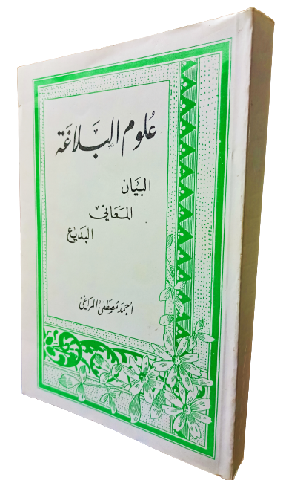 علوم البلاغة
البيان
المعاني
البديع
احمد مصطفى المراغي